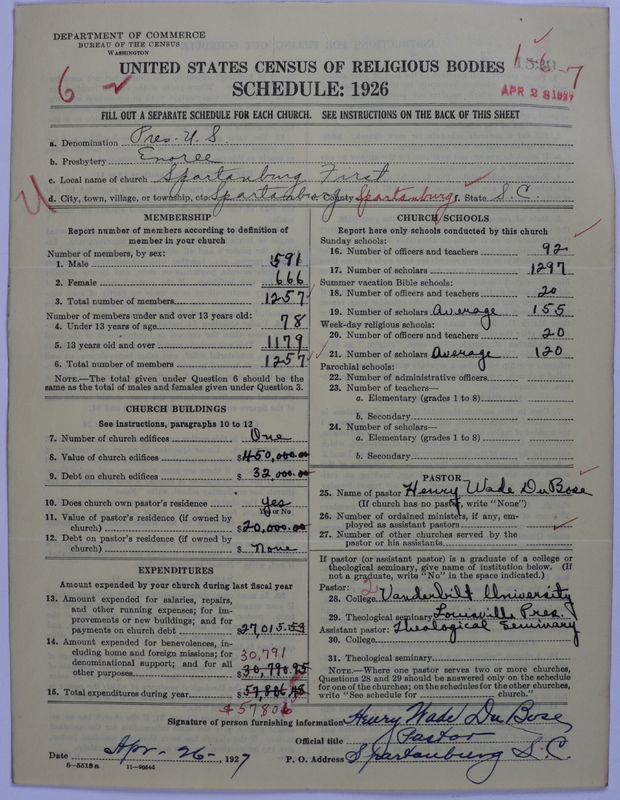 DEPARTMENT OF COMMERCE
BUREAU OF THE CENSUS
WASHINGTON
UNITED STATES CENSUS OF RELIGIOUS BODIES
SCHEDULE: 1926
1-6-7
APR 28 1927
6
FILL OUT A SEPARATE SCHEDULE FOR EACH CHURCH. SEE INSTRUCTIONS ON THE BACK OF THIS SHEET
a. Denomination Pres. U.S.
b. Presbytery Enoree
c. Local name of church Spartanburg First
d. City, town, village, or township, etc. Spartanburg County Spartanburg f. State S.C.
MEMBERSHIP
Report number of members according to definition of
member in your church
Number of members, by sex:
1. Male 591
2. Female 666
3. Total number of members 1257
Number of members under and over 13 years old:
4. Under 13 years of age 78
5. 13 years old and over 1179
6. Total number of members 1257
NOTE.—The total given under Question 6 should be the
same as the total of males and females given under Question 3.
CHURCH BUILDINGS
See instructions, paragraphs 10 to 12
7. Number of church edifices One
8. Value of church edifices $450,000.00
9. Debt on church edifices $ 32,000.00
10. Does church own pastor's residence Yes
Yes or No
11. Value of pastor's residence (if owned by
church) $20,000.00
12. Debt on pastor's residence (if owned by
church) $ None
EXPENDITURES
Amount expended by your church during last fiscal year
13. Amount expended for salaries, repairs,
and other running expenses; for im-
provements or new buildings; and for
payments on church debt $27,015.53
14. Amount expended for benevolences, in-
cluding home and foreign missions; for
denominational support; and for all
other purposes $30,790.95
30,791
15. Total expenditures during year $57,806.45
$57806
CHURCH SCHOOLS
Report here only schools conducted by this church
Sunday schools:
16. Number of officers and teachers 92
17. Number of scholars 1297
Summer vacation Bible schools:
18. Number of officers and teachers 20
19. Number of scholars Average 155
Week-day religious schools:
20. Number of officers and teachers 20
21. Number of scholars Average 120
Parochial schools:
22. Number of administrative officers
23. Number of teachers—
a. Elementary (grades 1 to 8)
b. Secondary
24. Number of scholars—
a. Elementary (grades 1 to 8)
b. Secondary
PASTOR
25. Name of pastor Henry Wade DuBose
(If church has no pastor, write "None")
26. Number of ordained ministers, if any, em-
ployed as assistant pastors
27. Number of other churches served by the
pastor or his assistants
If pastor (or assistant pastor) is a graduate of a college or
theological seminary, give name of institution below. (If
not a graduate, write "No" in the space indicated.)
Pastor: 2
28. College Vanderbilt University
29. Theological seminary Louisville Pres.
Assistant pastor: Theological Seminary
30. College
31. Theological seminary
NOTE.—Where one pastor serves two or more churches,
Questions 28 and 29 should be answered only on the schedule
for one of the churches; on the schedules for the other churches,
write "See schedule for church."
Signature of person furnishing information Henry Wade DuBose
Official title Pastor
Date Apr-26-, 1927 P. O. Address Spartanburg S.C.